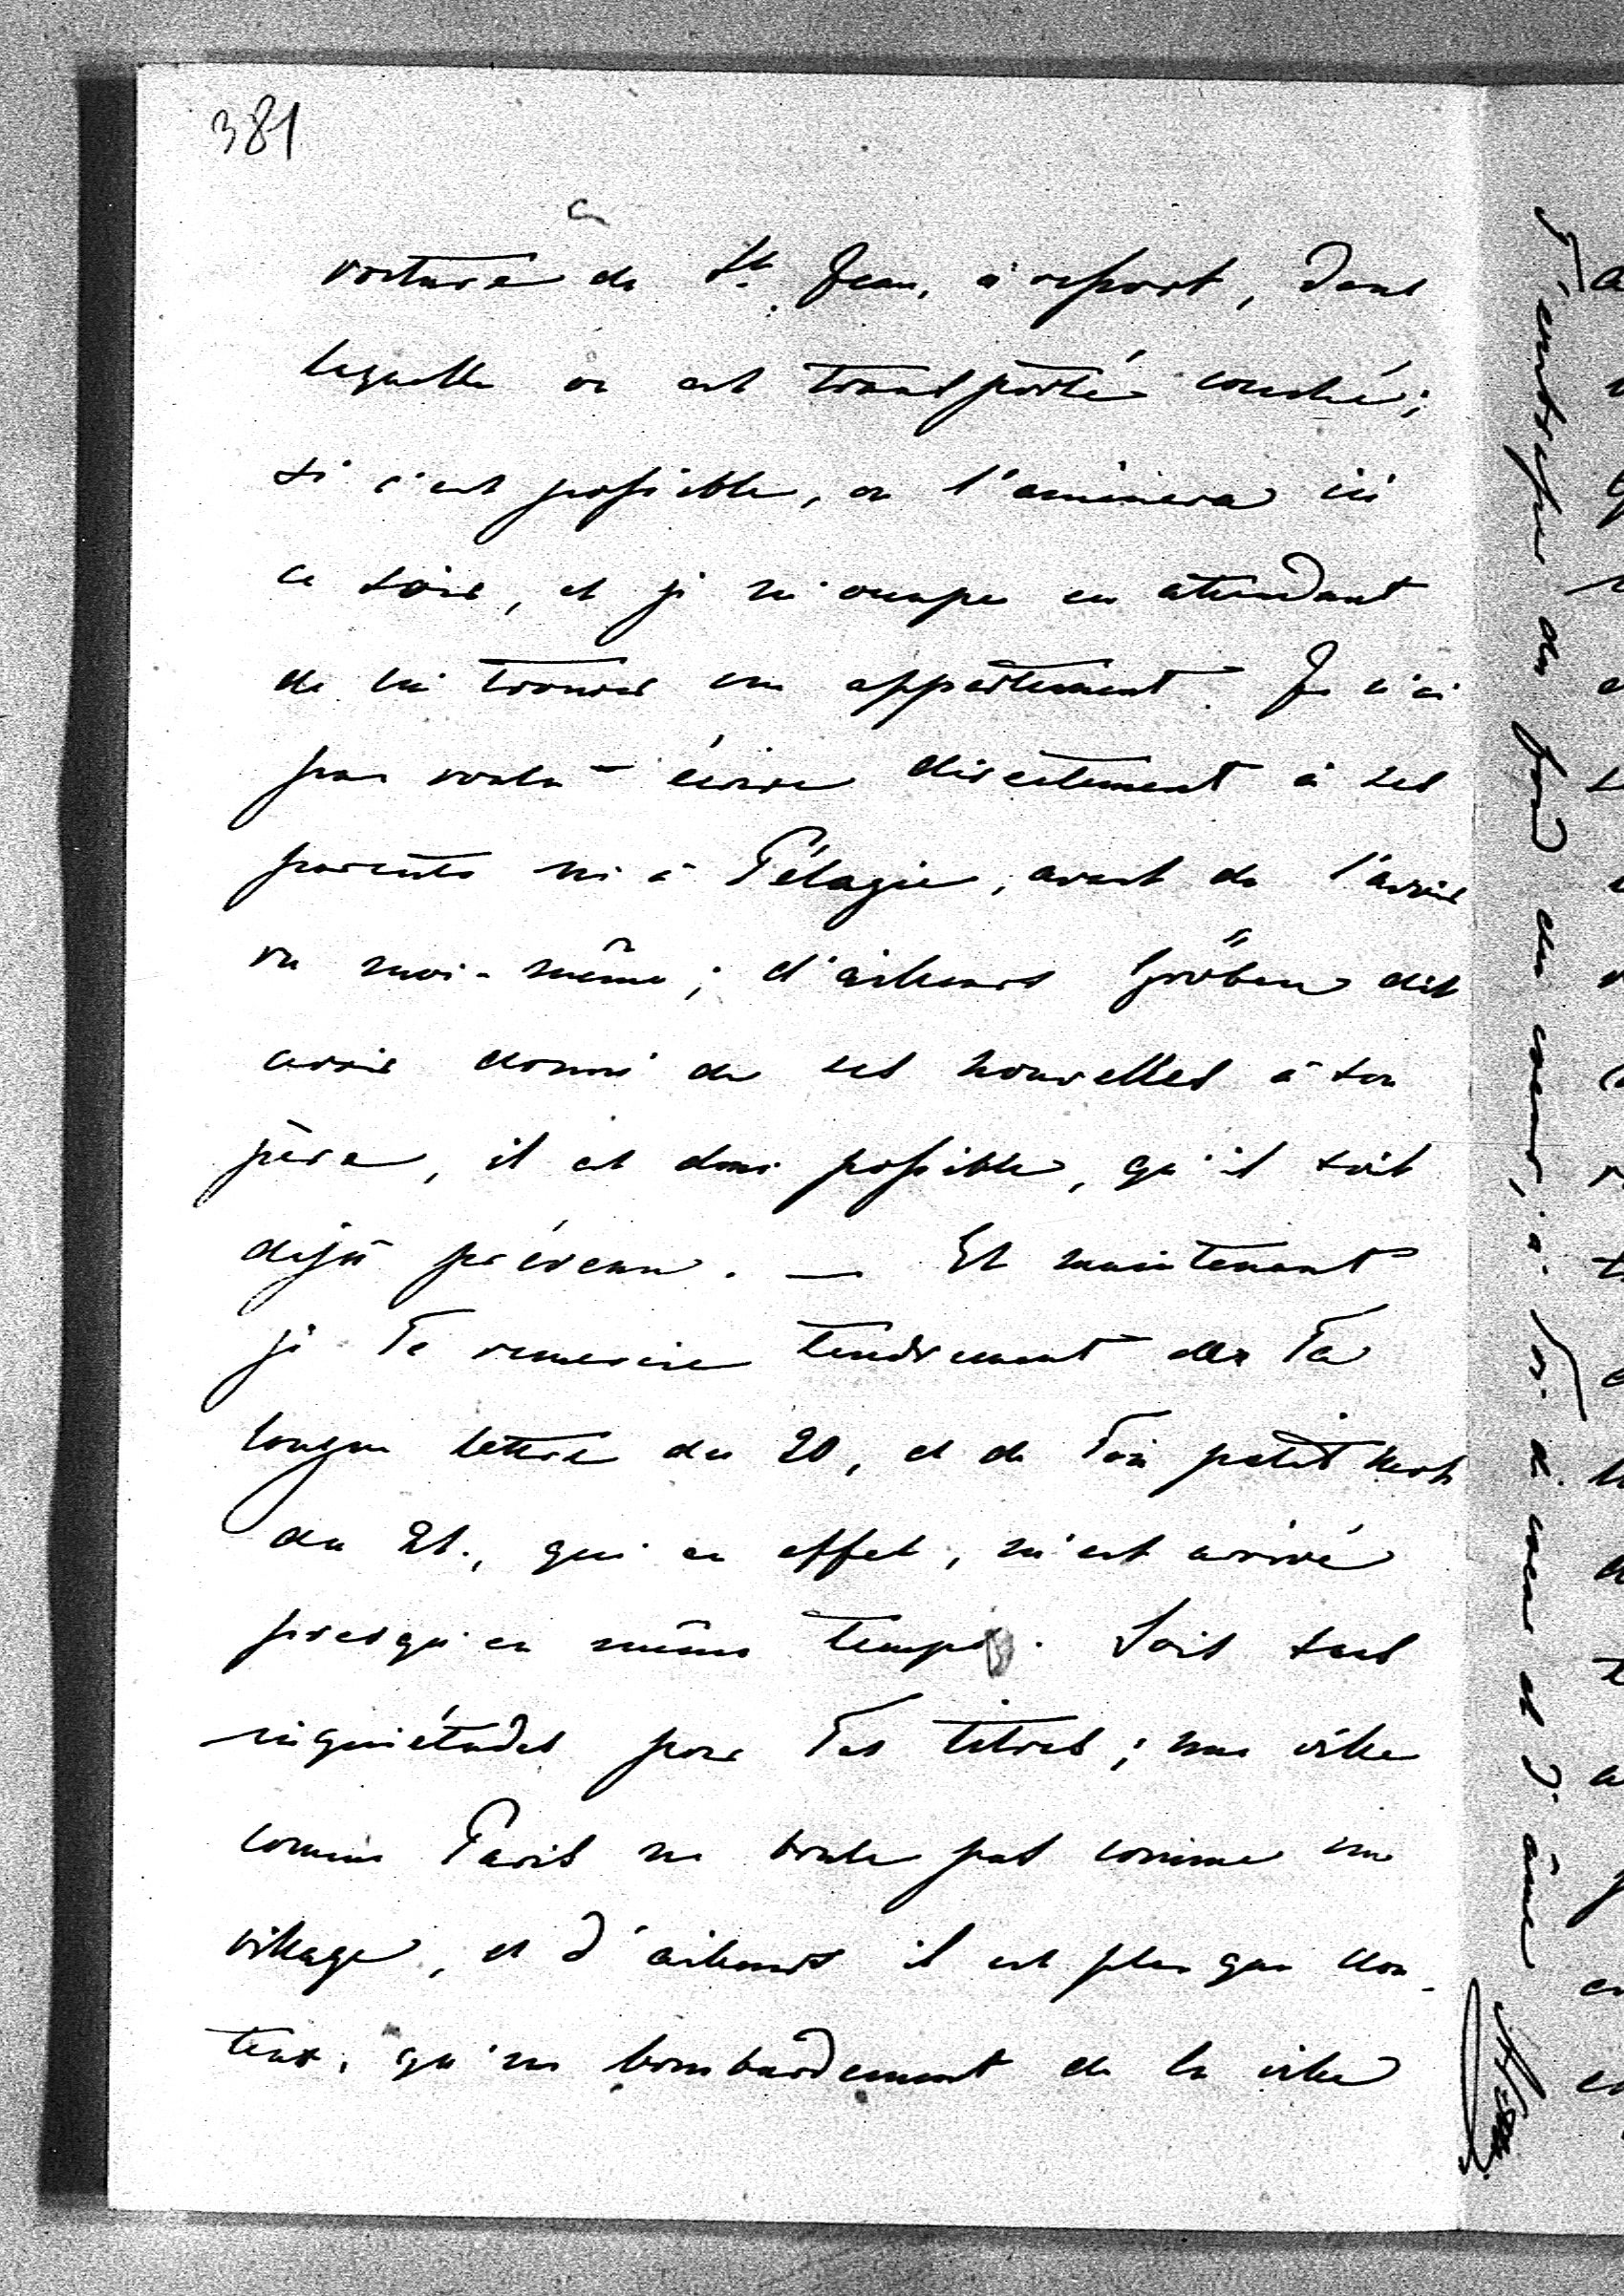 381
voiture de St. Jean, à ressort, dans
laquelle on est transporté couché;
si c'est possible, on l'amènera ici
ce soir, et je m'occupe en attendant
de lui trouver un appartement. Je n'ai
pas voulu écrire directement à ses
parents ni à Pélagie, avant de l'avoir
vu moi-même; d'ailleurs Gröben dit
avoir donné de ses nouvelles à son
père, il est donc possible, qu'il soit
déjà prévenu. — Et maintenant
je Te remercie tendrement de Ta
longue lettre du 20, et de Ton petit mot
du 21., qui en effet, m'est arrivé
presqu'en même temps. Sois sans
inquiétudes pour Tes titres; une ville
comme Paris ne brule pas comme un
village, et d'ailleurs il est plus que dou-
teux, qu'un bombardement de la ville
du fond du coeur, à Toi de coeur et d'âme